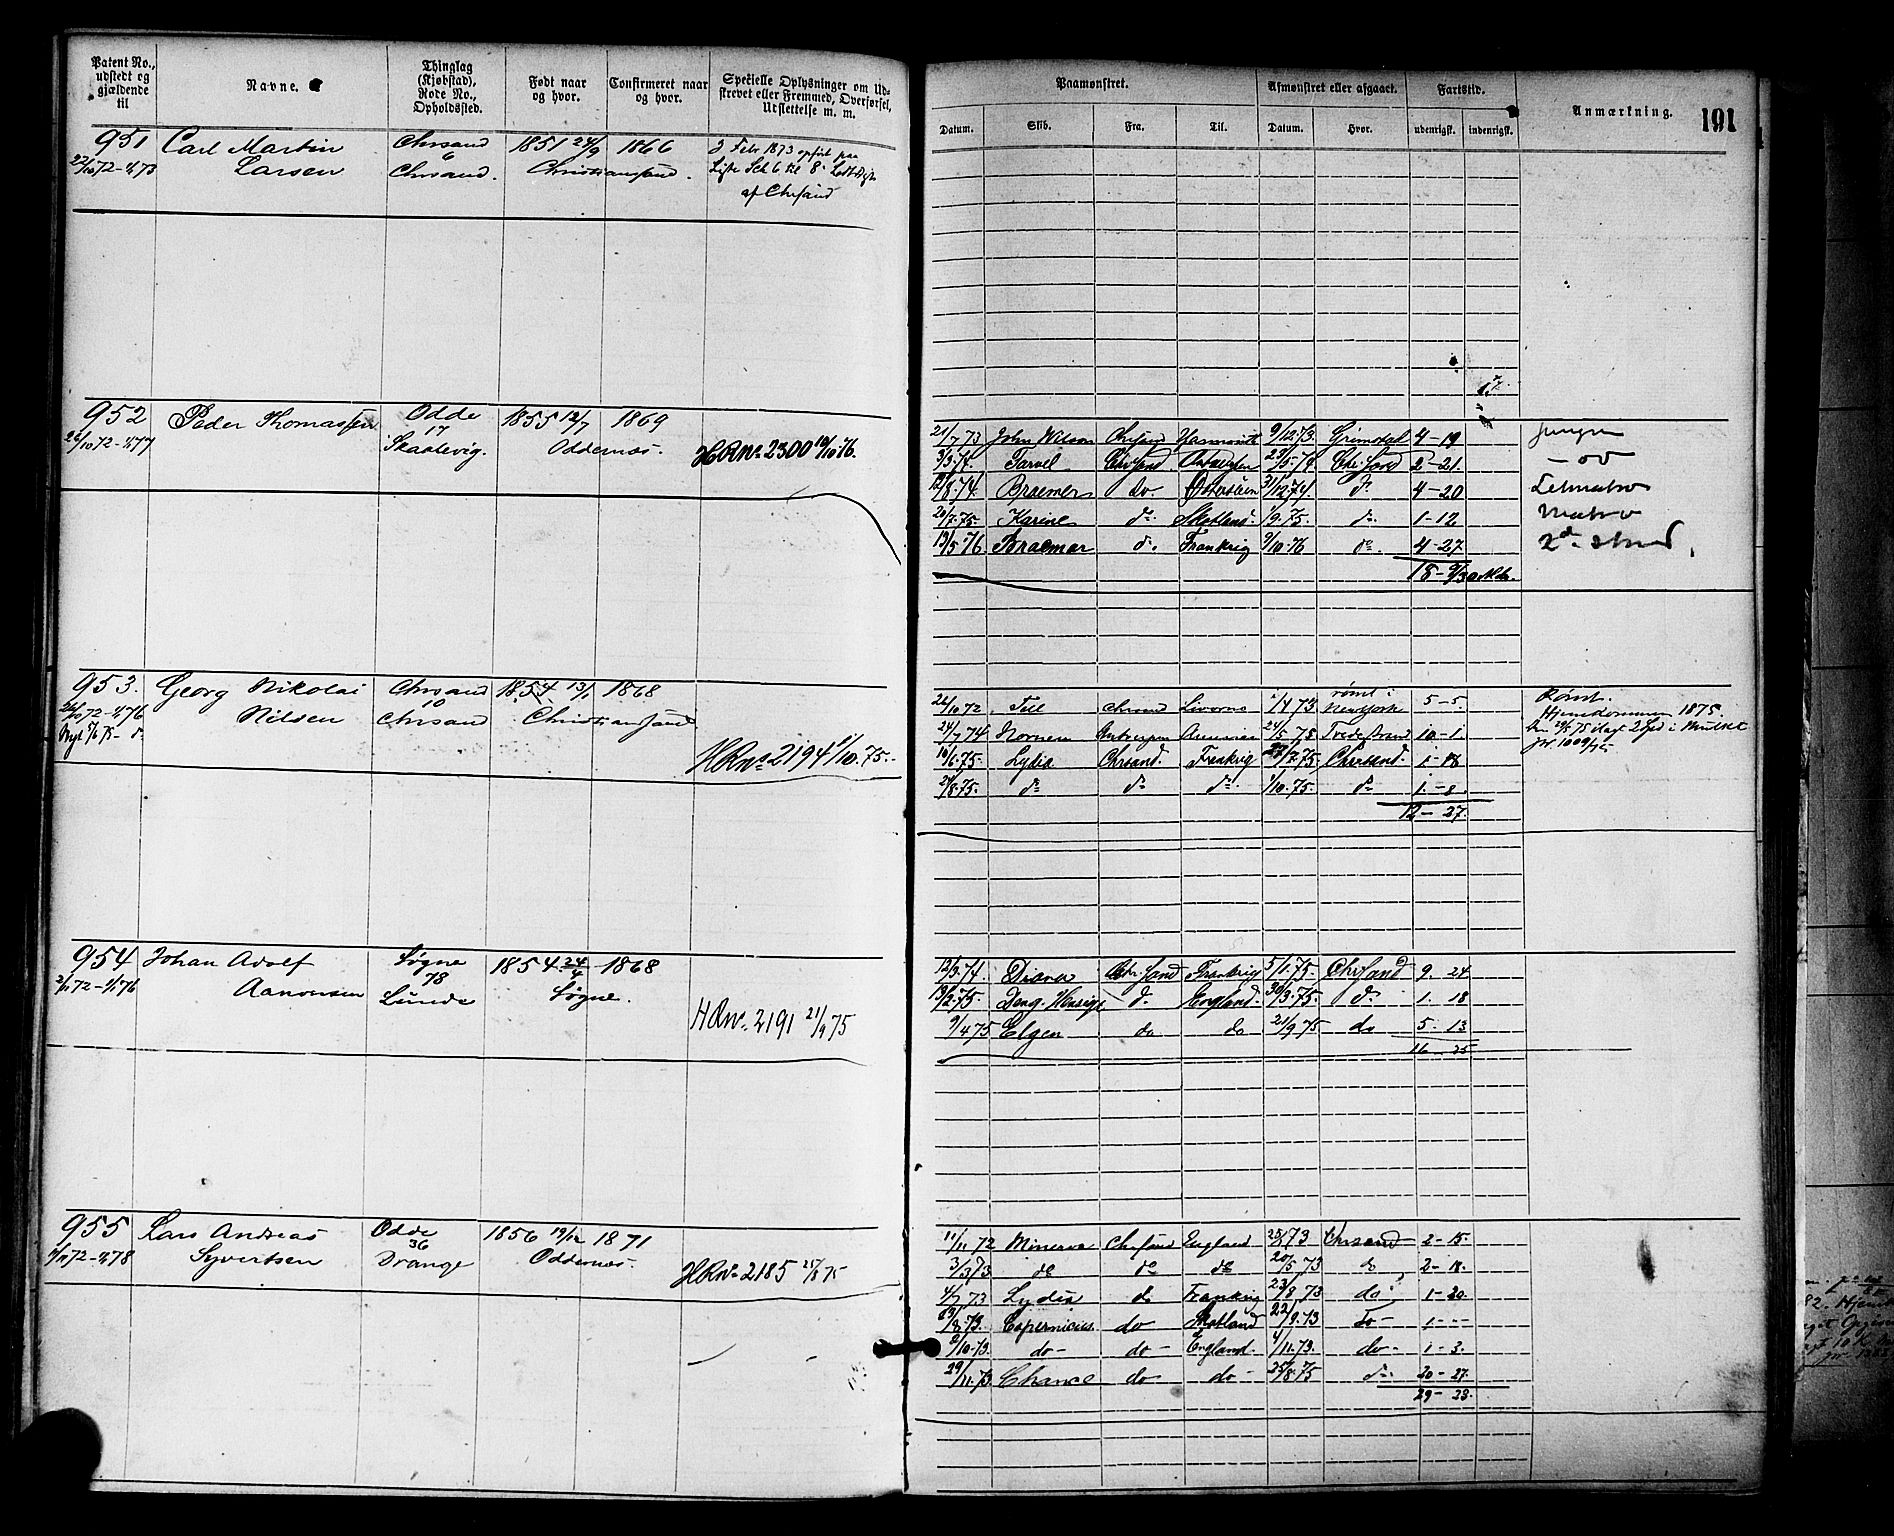 Patent No., udstedt og gjældende til | Navne. | Thinglag (Kjøbstad), Rode No., Opholdssted. | Født naar og hvor. | Confirmeret naar og hvor. | Specielle Oplysninger om Udskrevet eller Fremmed, Overførsel, Udslettelse m. m.
Paamønstret. | Afmønstret eller afgaaet. | Fartstid. | Anmærkning. | 191
Datum. | Skib. | Fra. | Til. | Datum. | Hvor. | udenrigsk. | indenrigsk.
951 | Carl Martin | Chrsand | 1851 | 1866 | 2 Febr 1873 opført paa
Larsen | 6
Chrsand. | Christiansand. | af Chrsand
952 | Peder Thomassen | Odde | 1855 12/7 | 1869
26/10 72 - 1/1 77 | 17
Skaalevig. | Oddernæs. | HRNo. 2300 19/10 76.
21/7 73 | John Wilson | Chrsand | Yarmouth | 9/12 73. | Grimstad | 4-19
3/3 74. | Farvel | Chrsand | Antwerpen | 23/5 74 | Chrsand | 2-21.
12/8 74. | Braemer | do. | 31/12 74 | do | 4-20 | Letmatro
20/7 75. | Karine | do. | Skotland. | 1/9 75. | do. | 1-12 | Matro
13/5 76 | Braemar | do. | Frankrig | 9/10 76 | do. | 4-27.
18 - 9/30 Mdr.
953. | Georg Nikolai | Chrsand | 1854 13/1 | 1868
26/10 72 - 1/1 76 | Nilsen | 10
Chrsand | Christiansand
HRNo. 2194 1/10. 75.
26/10 72 | Tell | Chrsand | Livorno | 1/4 73 | rømt i Newyork | 5-5. | Rømt.
Hjemkommen 1875
24/7 74 | Nornen | Antwerpen | 24/5 75 | Tvedestrand | 10-1
16/6 75. | Lydia | Chrsand. | Frankrig | 27/7 75. | Chrsand. | 1-18
24/8 75. | do | do | do. | 1/10. 75. | do | 1-8.
12-27.
954 | Johan Adolf | Søgne | 1854 24/4 | 1868
2/11 72 - 1/1 76 | Aanonsen | 78
Lunde | Søgne.
HRNo. 2191 21/9 75
12/3 74. | Diana | Chrsand | Frankrig | 5/1 75. | Chrsand | 9 24
13/2 75. | do | England. | 30/3 75. | do | 1. 18
9/4 75 | Elgen | do | do | 21/9 75 | do | 5. 13
16 - 25
955 | Lars Andreas | Odde | 1856 19/12 | 1871
2/11 72 - 1/1 78 | Syvertsen | 36
Drange | Oddernæs.
HRNo. 2185 25/8 75
11/11 72 | Minerva | Chrsand | England | 73 | Chrsand | 2-15.
3/3 73 | do | do | do | 20/5 73 | do | 2-18.
4/7 73 | Lydia | do | Frankrig | 23/8 73 | do | 1-20
8 73. | Copernicus. | do | Skotland | 22/9 73 | do | 1--
2/10 73. | do - | do - | England. | 4/11 73. | do - | 1-3.
29/11 73. | Chance | do | do - | 25/8 75 | do. | 20-27.
29-23.